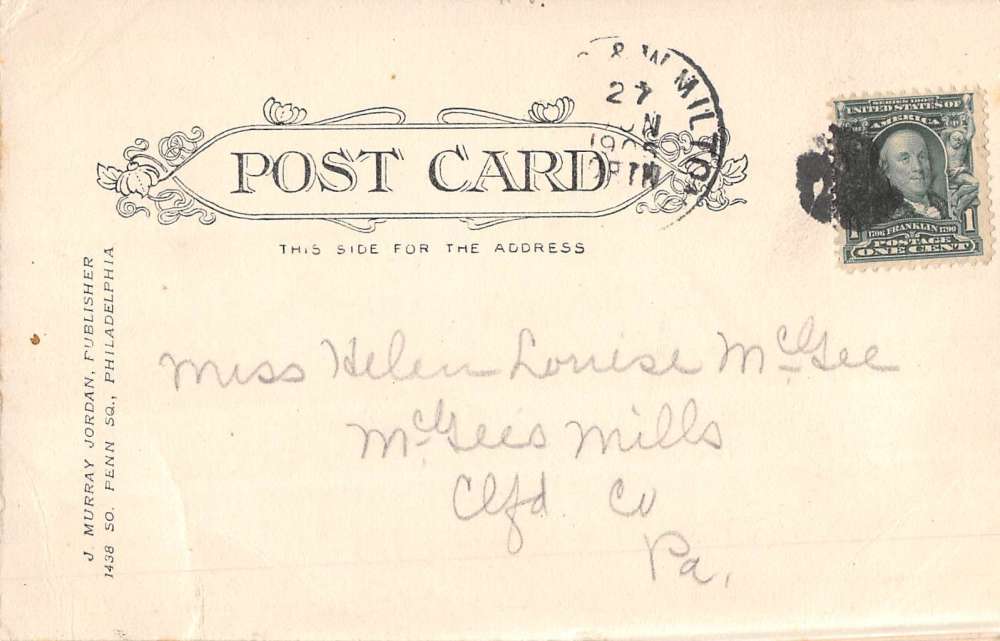 POST CARD
THIS SIDE FOR THE ADDRESS
& W MILTON
27
SERIES 1902
UNITED STATES OF
AMERICA
1706 FRANKLIN 1790
POSTAGE
1
ONE CENT
J. MURRAY JORDAN, PUBLISHER
1438 SO. PENN SQ., PHILADELPHIA
Miss Helen Louise McGee
McGees Mills
Clfd Co
Pa.